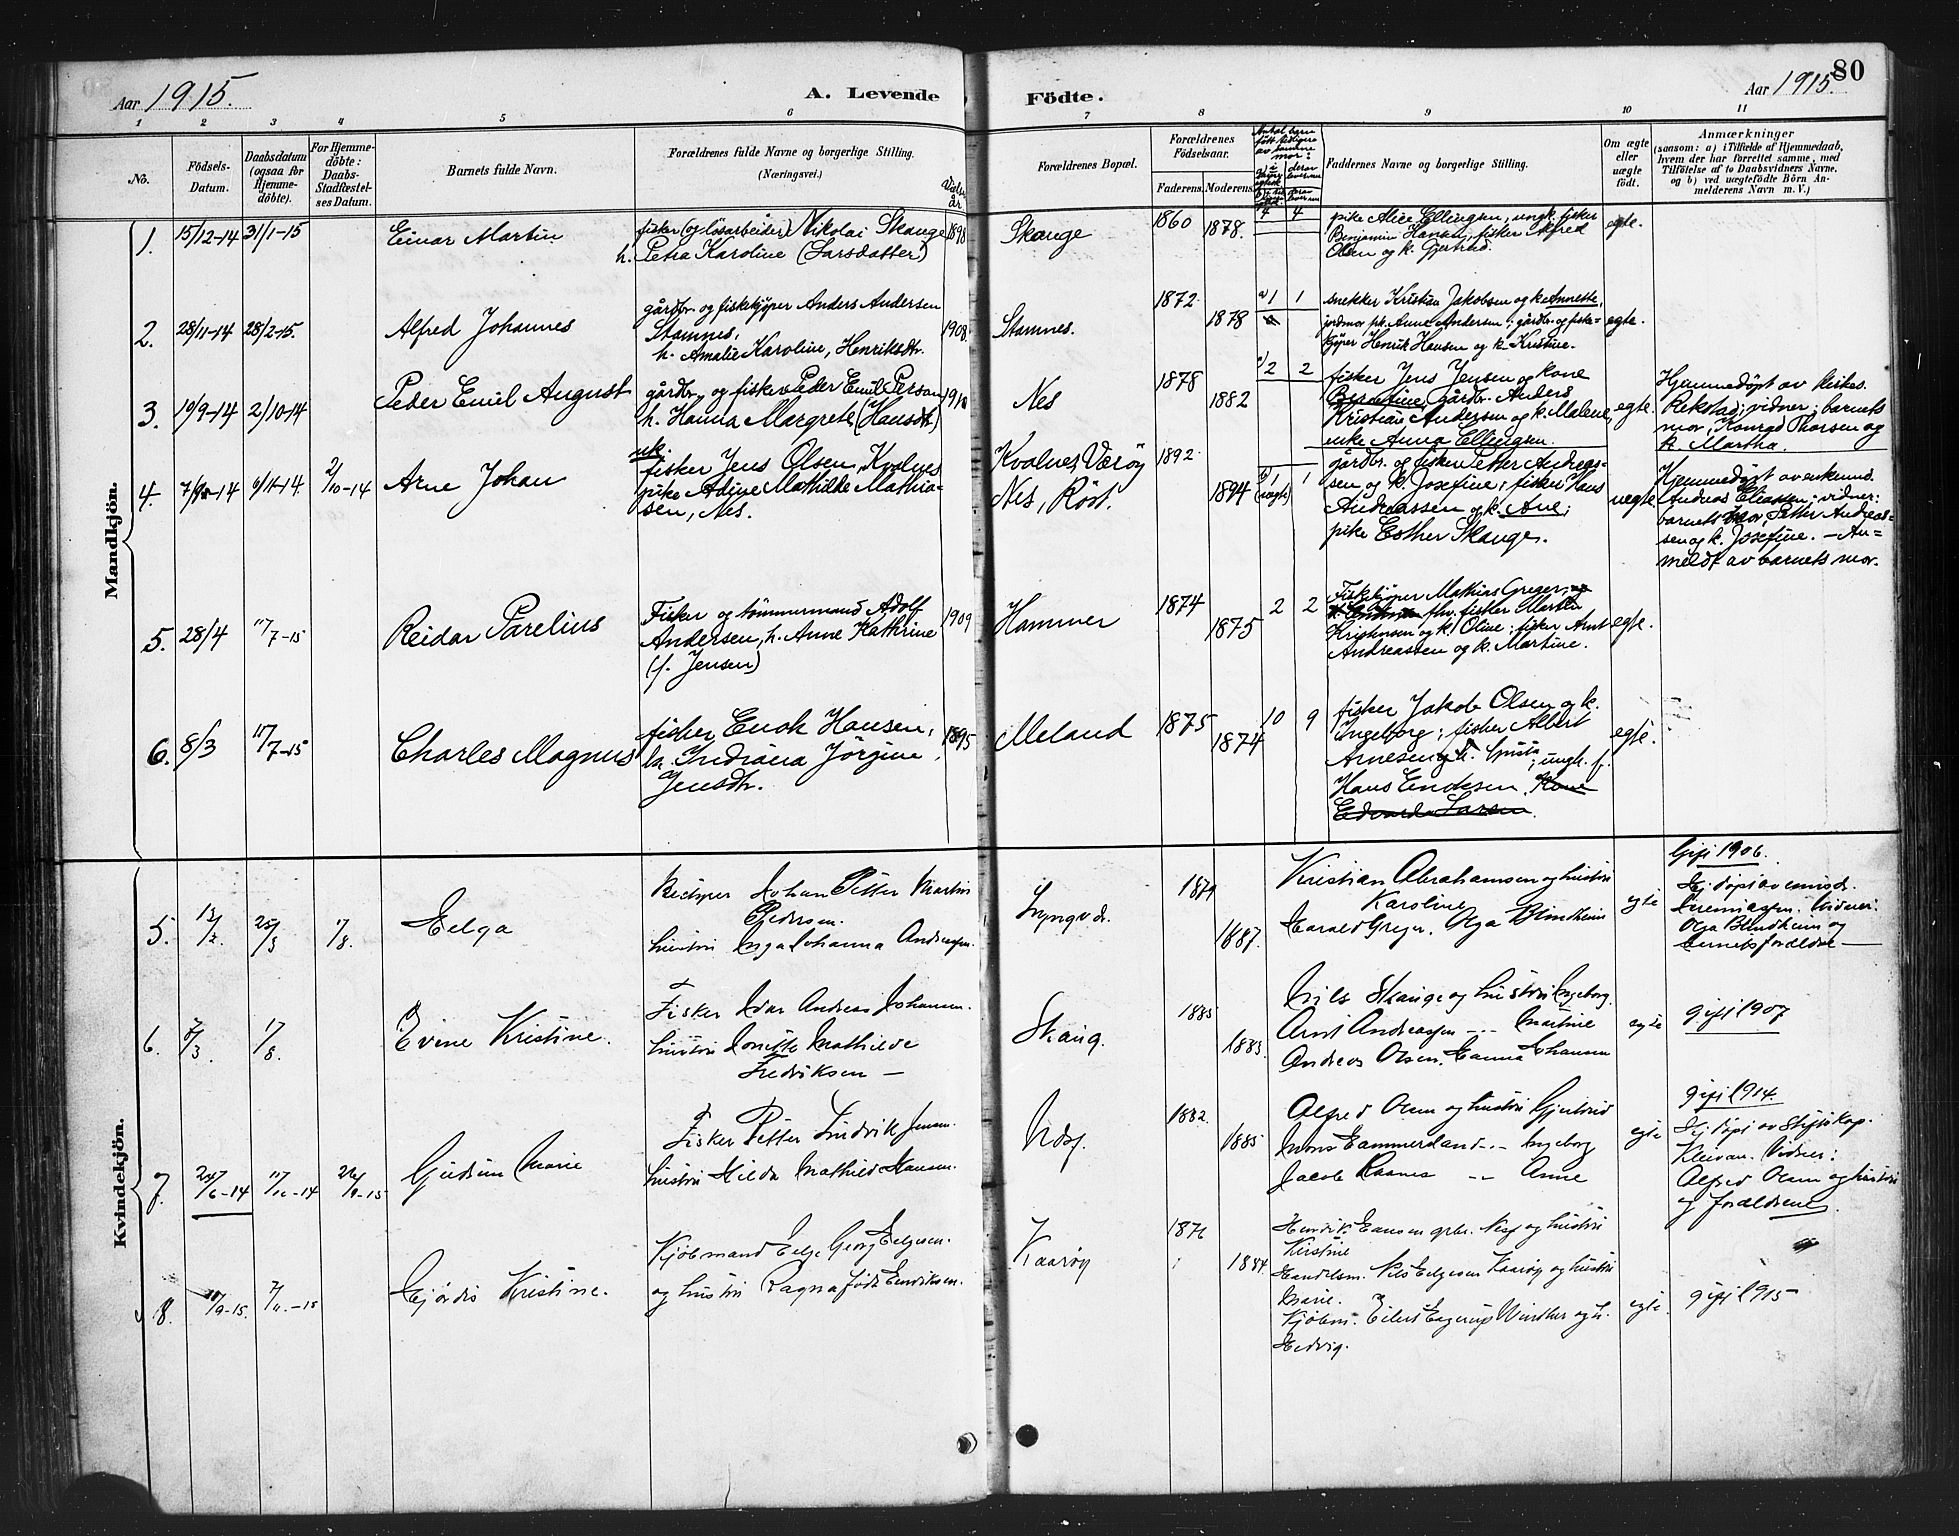 Aar 1915.
A. Levende
Födte.
Aar 1915.
80
1 2 3 4 5 6 7 8 9 10 11
No.
Födsels-Datum.
Daabsdatum (ogsaa for Hjemme-döbte).
For Hjemme-döbte: Daabs-Stadfæstel-ses Datum.
Barnets fulde Navn.
Forældrenes fulde Navne og borgerlige Stilling.
(Næringsvei.)
Vielses år
Forældrenes Bopæl.
Forældrenes Födselsaar.
Faderens. Moderens.
Faddernes Navne og borgerlige Stilling.
Om ægte eller uægte födt.
Anmærkninger
(saasom: a) i Tilfælde af Hjemmedaab,
hvem der har forrettet samme, med
Tilföielse af to Daabsvidners Navne,
og b) ved uægtefödte Börn An-
melderens Navn m. V.)
Mandkjön.
1. 15/12-14 31/1-15 Einar Martin
fisker (og løsarbeider) Nikolai Skauge
h. Petra Karoline (Larsdatter)
1898
Skauge
1860 1878. 4 4
pike Alice Ellingsen, ungk. fisker
Benjamin Hansen, fisker Alfred
Olsen og k. Gjertrud.
egte.
2. 28/11-14 28/2-15. Alfred Johannes
gårdbr. og fiskekjøper Anders Andersen
Stamnes,
h. Amalie Karoline, Henriksdtr.
1908.
Stamnes.
1872. 1878 1 1
snekker Kristian Jakobsen og k. Annette,
jordmor frk. Anne Andersen; gårdbr. og fiske-
kjøper Henrik Hansen og k. Kristine.
egte.
3. 19/9-14 2/10-14 Peder Emil August
gårdbr. og fisker Peder Emil Person
h. Hanna Margrete (Hansdtr)
1910
Nes
1878 1882 2 2
fisker Jens Jensen og kone
Berntine, gårdbr. Anders
Kristian Andersen og k. Malene,
enke Anna Ellingsen.
egte.
Hjemmedøpt av
Rekstad; vidner: barnets
mor, Konrad Thorsen og
k. Martha.
4. 2/10-14 Arne Johan
fisker Jens Olsen, Kvalnes
pike Adine Mathilde Mathia-
sen, Nes.
Kvalnes Værøy
Nes, Röst.
1892. 1894 1 1
gårdbr. og fisker Petter Andreas-
sen og k. Josefine; fisker Hans
Andreassen og k. Ane;
pike Esther Skauge.
uegte.
Hjemmedøpt av
Andreas Eliassen; vidner:
barnets mor, Petter Andreas-
sen og k. Josefine. — An-
meldt av barnets mor.
5. 28/4 11/7-15 Reidar Parelius
Fisker og tømmermand Adolf
Andersen, h. Anne Kathrine
(f. Jensen)
1909
Hammer
1874 1875 2 2
Fiskekjøper Mathias Greger,
fisker Martin
Kristensen og k. Oline; fisker Arnt
Andreassen og k. Martine.
egte.
6. 8/3 11/7-15 Charles Magnus
fisker Enok Hansen,
h. Indiana Jörgine
Jensdtr.
1895
Meland
1875 1874 10 9
fisker Jakob Olsen og k.
Ingeborg; fisker Albert
Arnesen og k. ; ungk. f.
Hans Endesen, Kone
Edvarda Larsen.
egte.
Kvindekjön.
5. 17/8. Helga
Johan Petter Martin
Pedersen.
hustru Inga Johanna Andreassen
Lyngvær.
1879 1887.
Kristian Abrahamsen og hustru
Karoline
Harald Greger. Olga Blindheim
egte
Gift 1906.
Hj. døpt av
Jeremiassen. Vidner:
Olga Blindheim og
barnets forældre —
6. 7/3 1/8. Evine Kristine.
Fisker Ivar Andreas Johansen.
hustru Jonette Mathilde
Fredriksen —
Skaug.
1885 1883.
Nils Skauge og hustru Ingeborg.
Arnt Andreassen -"- Martine
Andreas Olsen. Hanna Johansen
egte
gift 1907
7. 11/10-14 Gudrun Marie
Fisker Petter Ludvik Jensen.
hustru Hilda Mathilde Hansen.
1882. 1885
Alfred Olsen og hustru Gjertrud
Mons Hammerland -"- Ingeborg
Jacob Raanes -"- Anne
egte
gift 1914.
Hj. døpt av Stiftskap.
Kleivan. Vidner:
Alfred Olsen og hustru
og forældrene
8. 11/9-15. 7/11-15 Hjördis Kristine.
Kjöbmand Helge Georg Helgesen.
og hustru Ragna född Henriksen.
Kaarøy
1876 1884.
Henrik Hansen grbr. Nes og hustru
Kristine
Handelsm. Nils Helgesen Kaarøy og hustru
Marie.
Kjöbm. Eilert Hagerup Winther og h.
Hedvig.
egte.
gift 1915